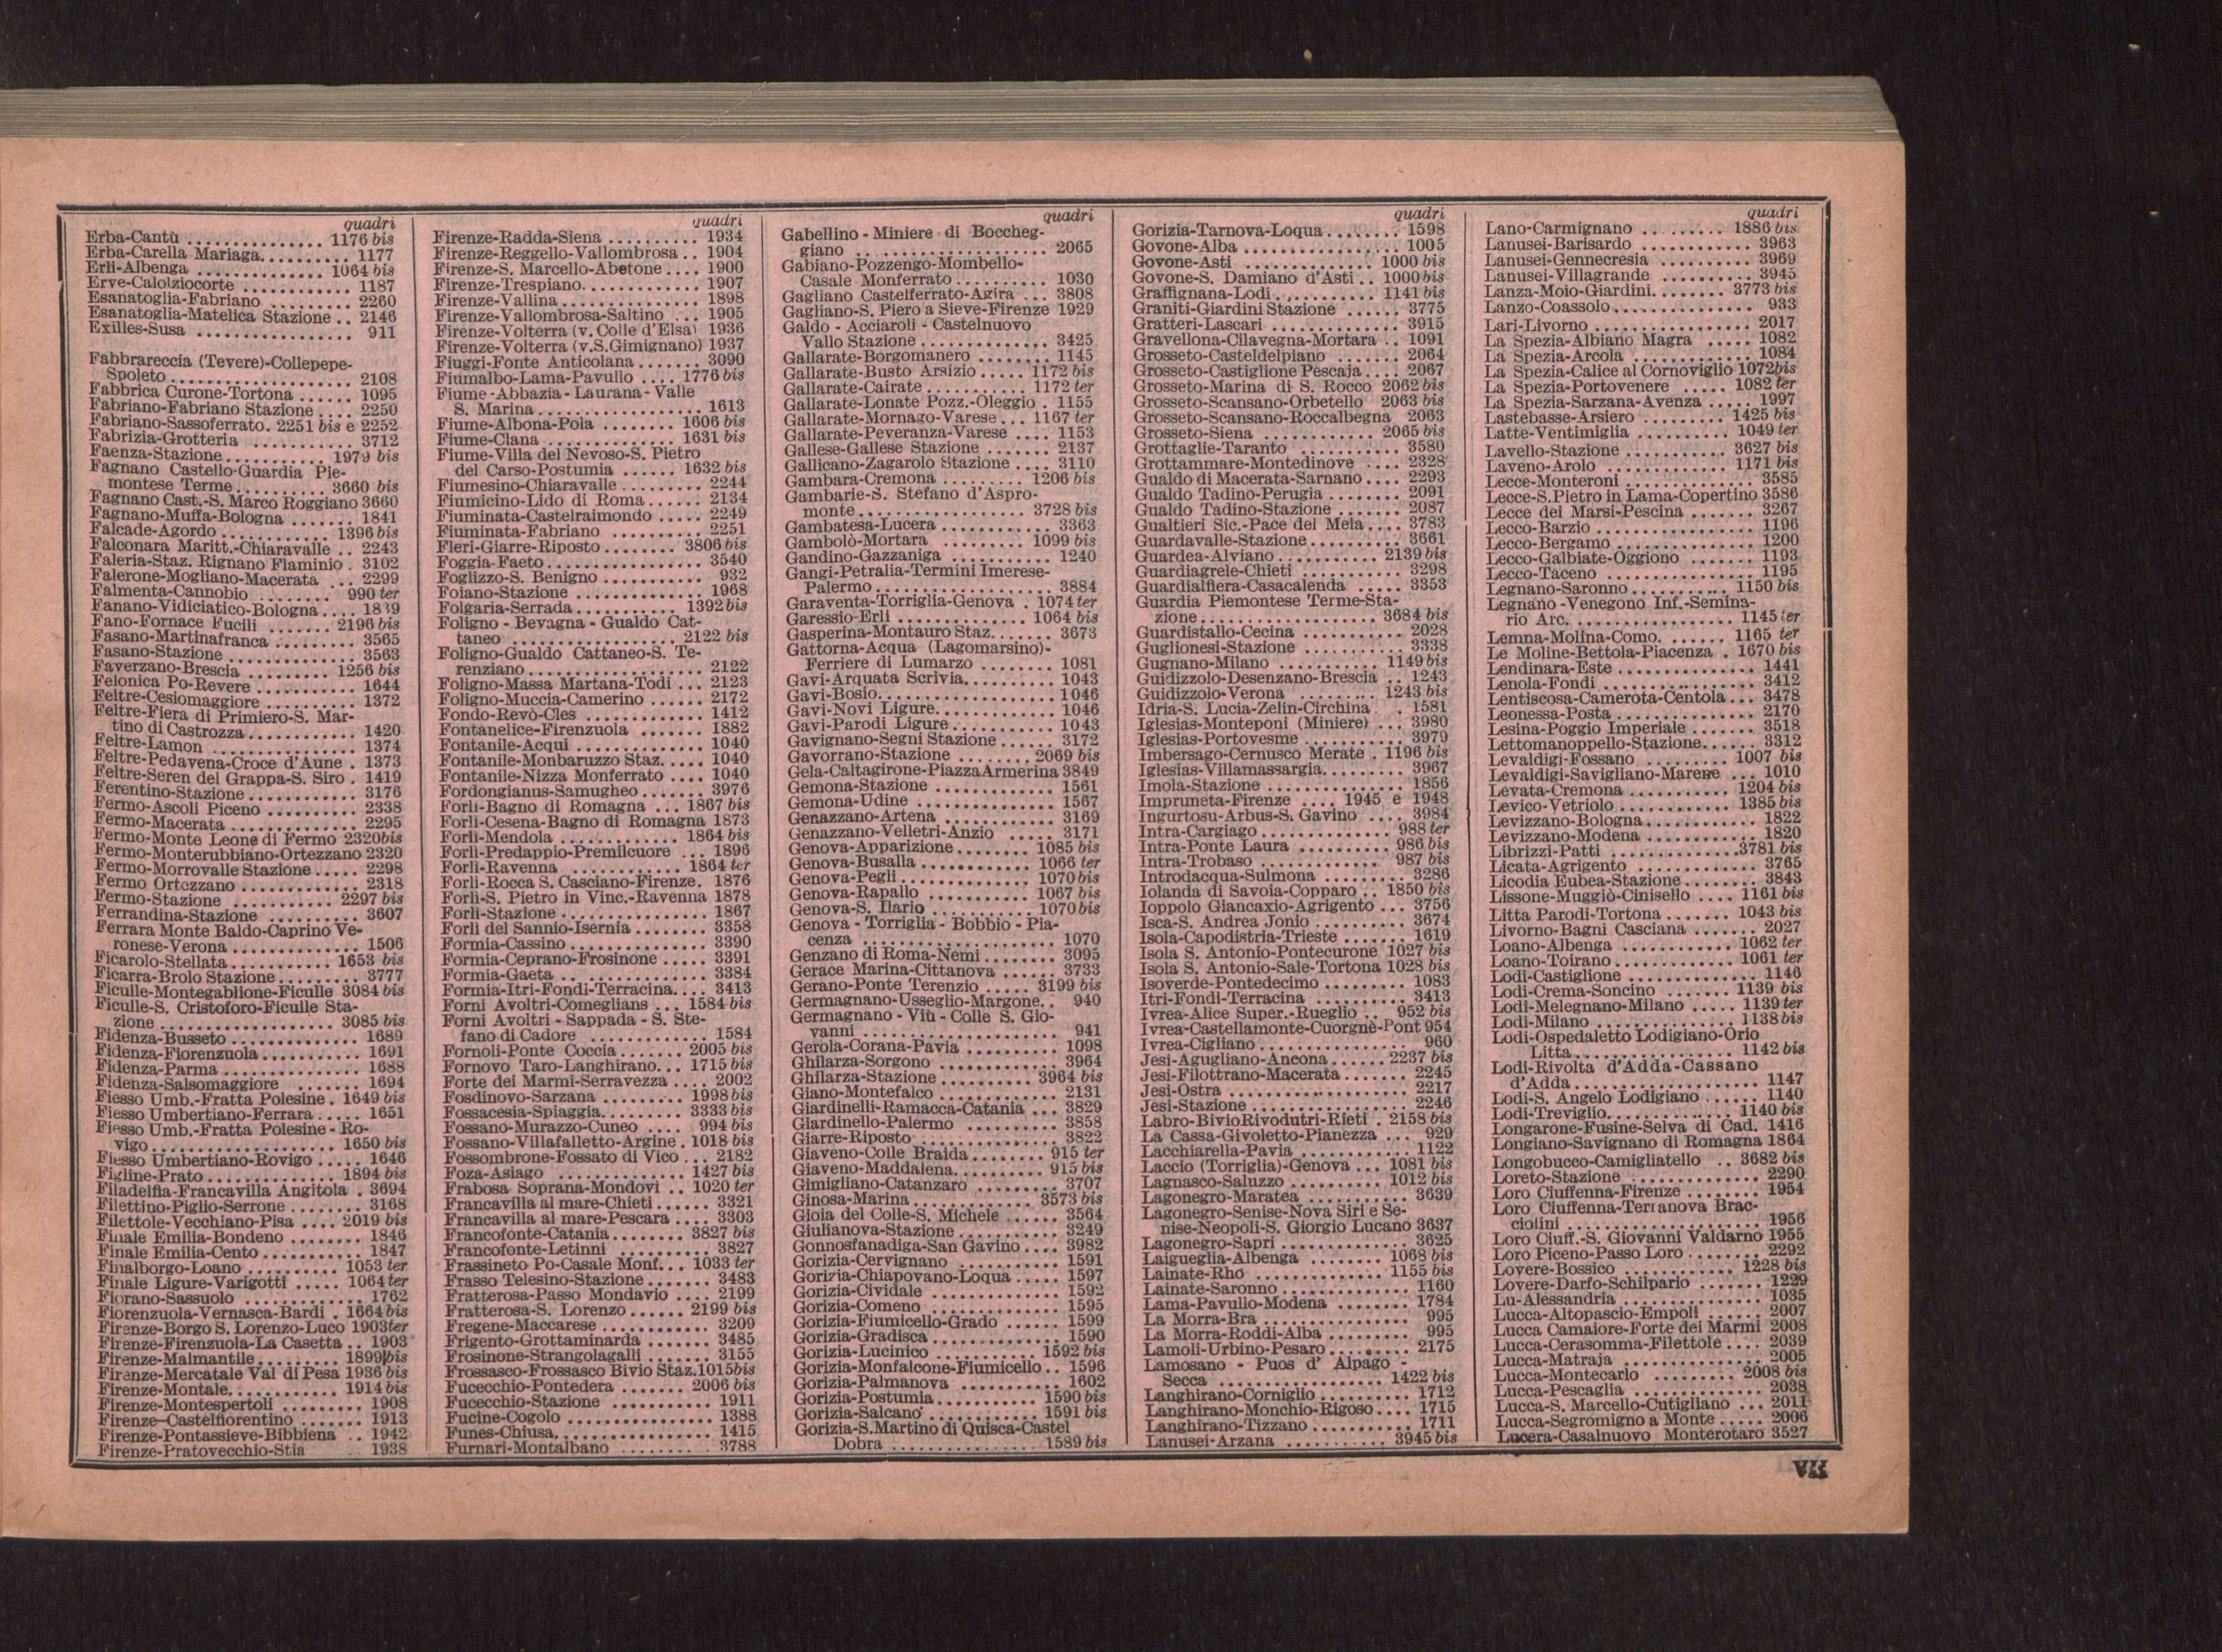 quadri
Erba-Cantù ............... 1176 bis
Erba-Carella Mariaga.......... 1177
Erli-Albenga .............. 1064 bis
Erve-Calolziocorte ............ 1187
Esanatoglia-Fabriano ......... 2260
Esanatoglia-Matelica Stazione .. 2146
Exilles-Susa ................. 911
Fabbrareccia (Tevere)-Collepepe-
Spoleto .................... 2108
Fabbrica Curone-Tortona ...... 1095
Fabriano-Fabriano Stazione .... 2250
Fabriano-Sassoferrato. 2251 bis e 2252
Fabrizia-Grotteria ........... 3712
Faenza-Stazione........... 1979 bis
Fagnano Castello-Guardia Pie-
montese Terme.......... 3660 bis
Fagnano Cast.-S. Marco Roggiano 3660
Fagnano-Muffa-Bologna ....... 1841
Falcade-Agordo ............ 1396 bis
Falconara Maritt.-Chiaravalle .. 2243
Faleria-Staz. Rignano Flaminio . 3102
Falerone-Mogliano-Macerata ... 2299
Falmenta-Cannobio ........ 990 ter
Fanano-Vidiciatico-Bologna.... 1839
Fano-Fornace Fucili ....... 2196 bis
Fasano-Martinafranca ......... 3565
Fasano-Stazione .............. 3563
Faverzano-Brescia ......... 1256 bis
Felonica Po-Revere ........... 1644
Feltre-Cesiomaggiore .......... 1372
Feltre-Fiera di Primiero-S. Mar-
tino di Castrozza............ 1420
Feltre-Lamon ................ 1374
Feltre-Pedavena-Croce d'Aune . 1373
Feltre-Seren del Grappa-S. Siro . 1419
Ferentino-Stazione ............ 3176
Fermo-Ascoli Piceno .......... 2338
Fermo-Macerata .............. 2295
Fermo-Monte Leone di Fermo 2320bis
Fermo-Monterubbiano-Ortezzano 2320
Fermo-Morrovalle Stazione ..... 2298
Fermo Ortezzano ............. 2318
Fermo-Stazione ........... 2297 bis
Ferrandina-Stazione .......... 3607
Ferrara Monte Baldo-Caprino Ve-
ronese-Verona .............. 1506
Ficarolo-Stellata........... 1653 bis
Ficarra-Brolo Stazione ......... 3777
Ficulle-Montegabbione-Ficulle 3084 bis
Ficulle-S. Cristoforo-Ficulle Sta-
zione .................... 3085 bis
Fidenza-Busseto .............. 1689
Fidenza-Fiorenzuola........... 1691
Fidenza-Parma ............... 1688
Fidenza-Salsomaggiore ....... 1694
Fiesso Umb.-Fratta Polesine . 1649 bis
Fiesso Umbertiano-Ferrara ..... 1651
Fiesso Umb.-Fratta Polesine - Ro-
vigo..................... 1650 bis
Fiesso Umbertiano-Rovigo ..... 1646
Figline-Prato............... 1894 bis
Filadelfia-Francavilla Angitola . 3694
Filettino-Piglio-Serrone ........ 3168
Filettole-Vecchiano-Pisa .... 2019 bis
Finale Emilia-Bondeno ........ 1846
Finale Emilia-Cento ........... 1847
Finalborgo-Loano .......... 1053 ter
Finale Ligure-Varigotti ..... 1064 ter
Fiorano-Sassuolo ............. 1762
Fiorenzuola-Vernasca-Bardi . 1664 bis
Firenze-Borgo S. Lorenzo-Luco 1903ter
Firenze-Firenzuola-La Casetta .. 1903
Firenze-Malmantile......... 1899 bis
Firenze-Mercatale Val di Pesa 1936 bis
Firenze-Montale............ 1914 bis
Firenze-Montespertoli ......... 1908
Firenze-Castelfiorentino ....... 1913
Firenze-Pontassieve-Bibbiena .. 1942
Firenze-Pratovecchio-Stia .. 1938
quadri
Firenze-Radda-Siena .......... 1934
Firenze-Reggello-Vallombrosa .. 1904
Firenze-S. Marcello-Abetone .... 1900
Firenze-Trespiano............. 1907
Firenze-Vallina ............... 1898
Firenze-Vallombrosa-Saltino ... 1905
Firenze-Volterra (v. Colle d'Elsa) 1936
Firenze-Volterra (v.S.Gimignano) 1937
Fiuggi-Fonte Anticolana ....... 3090
Fiumalbo-Lama-Pavullo .... 1776 bis
Fiume - Abbazia - Laurana - Valle
S. Marina................. 1613
Fiume-Albona-Pola ........ 1606 bis
Fiume-Clana .............. 1631 bis
Fiume-Villa del Nevoso-S. Pietro
del Carso-Postumia ...... 1632 bis
Fiumesino-Chiaravalle ......... 2244
Fiumicino-Lido di Roma ...... 2134
Fiuminata-Castelraimondo ..... 2249
Fiuminata-Fabriano .......... 2251
Fleri-Giarre-Riposto........ 3806 bis
Foggia-Faeto................. 3540
Foglizzo-S. Benigno ........... 932
Foiano-Stazione .............. 1968
Folgaria-Serrada........... 1392 bis
Foligno - Bevagna - Gualdo Cat-
taneo ................... 2122 bis
Foligno-Gualdo Cattaneo-S. Te-
renziano................... 2122
Foligno-Massa Martana-Todi ... 2123
Foligno-Muccia-Camerino ...... 2172
Fondo-Revò-Cles ............. 1412
Fontanelice-Firenzuola ....... 1882
Fontanile-Acqui .............. 1040
Fontanile-Monbaruzzo Staz. .... 1040
Fontanile-Nizza Monferrato .... 1040
Fordongianus-Samugheo ....... 3976
Forlì-Bagno di Romagna ... 1867 bis
Forlì-Cesena-Bagno di Romagna 1873
Forlì-Mendola ............. 1864 bis
Forlì-Predappio-Premilcuore ... 1896
Forlì-Ravenna ............ 1864 ter
Forlì-Rocca S. Casciano-Firenze. 1876
Forlì-S. Pietro in Vinc.-Ravenna 1878
Forlì-Stazione ................ 1867
Forlì del Sannio-Isernia ........ 3358
Formia-Cassino ............... 3390
Formia-Ceprano-Frosinone ..... 3391
Formia-Gaeta .. ............. 3384
Formia-Itri-Fondi-Terracina.... 3413
Forni Avoltri-Comeglians ... 1584 bis
Forni Avoltri - Sappada - S. Ste-
fano di Cadore ............. 1584
Fornoli-Ponte Coccia ....... 2005 bis
Fornovo Taro-Langhirano... 1715 bis
Forte dei Marmi-Serravezza .... 2002
Fosdinovo-Sarzana ......... 1998 bis
Fossacesia-Spiaggia......... 3333 bis
Fossano-Murazzo-Cuneo .... 994 bis
Fossano-Villafalletto-Argine . 1018 bis
Fossombrone-Fossato di Vico ... 2182
Foza-Asiago .............. 1427 bis
Frabosa Soprana-Mondovì .. 1020 ter
Francavilla al mare-Chieti ...... 3321
Francavilla al mare-Pescara .... 3303
Francofonte-Catania ........ 3827 bis
Francofonte-Letinni .......... 3827
Frassineto Po-Casale Monf... 1033 ter
Frasso Telesino-Stazione ....... 3483
Fratterosa-Passo Mondavio .... 2199
Fratterosa-S. Lorenzo ...... 2199 bis
Fregene-Maccarese ............ 3209
Frigento-Grottaminarda ....... 3485
Frosinone-Strangolagalli ....... 3155
Frossasco-Frossasco Bivio Staz.1015bis
Fucecchio-Pontedera ....... 2006 bis
Fucecchio-Stazione ........... 1911
Fucine-Cogolo ................ 1388
Funes-Chiusa................. 1415
Furnari-Montalbano .......... 3788
quadri
Gabellino - Miniere di Boccheg-
giano .. .................. 2065
Gabiano-Pozzengo-Mombello-
Casale Monferrato .......... 1030
Gagliano Castelferrato-Agira ... 3808
Gagliano-S. Piero a Sieve-Firenze 1929
Galdo - Acciaroli - Castelnuovo
Vallo Stazione .............. 3425
Gallarate-Borgomanero ........ 1145
Gallarate-Busto Arsizio ..... 1172 bis
Gallarate-Cairate ........... 1172 ter
Gallarate-Lonate Pozz.-Oleggio . 1155
Gallarate-Mornago-Varese ... 1167 ter
Gallarate-Peveranza-Varese .... 1153
Gallese-Gallese Stazione ....... 2137
Gallicano-Zagarolo Stazione .... 3110
Gambara-Cremona ......... 1206 bis
Gambarie-S. Stefano d'Aspro-
monte.................. 3728 bis
Gambatesa-Lucera ............ 3363
Gambolò-Mortara ......... 1099 bis
Gandino-Gazzaniga ........... 1240
Gangi-Petralia-Termini Imerese-
Palermo ................... 3884
Garaventa-Torriglia-Genova . 1074 ter
Garessio-Erli .............. 1064 bis
Gasperina-Montauro Staz. ...... 3673
Gattorna-Acqua (Lagomarsino)-
Ferriere di Lumarzo ........ 1081
Gavi-Arquata Scrivia.......... 1043
Gavi-Bosio................... 1046
Gavi-Novi Ligure............. 1046
Gavi-Parodi Ligure ............ 1043
Gavignano-Segni Stazione ..... 3172
Gavorrano-Stazione ........ 2069 bis
Gela-Caltagirone-PiazzaArmerina 3849
Gemona-Stazione ............. 1561
Gemona-Udine ............... 1567
Genazzano-Artena ............ 3169
Genazzano-Velletri-Anzio ..... 3171
Genova-Apparizione ........ 1085 bis
Genova-Busalla ............ 1066 ter
Genova-Pegli .............. 1070 bis
Genova-Rapallo ........... 1067 bis
Genova-S. Ilario ........... 1070 bis
Genova - Torriglia - Bobbio - Pia-
cenza .................... 1070
Genzano di Roma-Nemi ....... 3095
Gerace Marina-Cittanova ...... 3733
Gerano-Ponte Terenzio ..... 3199 bis
Germagnano-Usseglio-Margone.. 940
Germagnano - Viù - Colle S. Gio-
vanni ..................... 941
Gerola-Corana-Pavia .......... 1098
Ghilarza-Sorgono ............. 3964
Ghilarza-Stazione .......... 3964 bis
Giano-Montefalco ............. 2131
Giardinelli-Ramacca-Catania ... 3829
Giardinello-Palermo .......... 3858
Giarre-Riposto ............... 3822
Giaveno-Colle Braida........ 915 ter
Giaveno-Maddalena.......... 915 bis
Gimigliano-Catanzaro ......... 3707
Ginosa-Marina ............. 3573 bis
Gioia del Colle-S. Michele ...... 3564
Giulianova-Stazione ........... 3249
Gonnosfanadiga-San Gavino .... 3982
Gorizia-Cervignano ........... 1591
Gorizia-Chiapovano-Loqua ..... 1597
Gorizia-Cividale .............. 1592
Gorizia-Comeno .............. 1595
Gorizia-Fiumicello-Grado ...... 1599
Gorizia-Gradisca .............. 1590
Gorizia-Lucinico ........... 1592 bis
Gorizia-Monfalcone-Fiumicello .. 1596
Gorizia-Palmanova ........... 1602
Gorizia-Postumia........... 1590 bis
Gorizia-Salcano ........... 1591 bis
Gorizia-S.Martino di Quisca-Castel
Dobra ................... 1589 bis
quadri
Gorizia-Tarnova-Loqua ........ 1598
Govone-Alba ................ 1005
Govone-Asti .............. 1000 bis
Govone-S. Damiano d'Asti .. 1000 bis
Graffignana-Lodi........... 1141 bis
Graniti-Giardini Stazione ...... 3775
Gratteri-Lascari .............. 3915
Gravellona-Cilavegna-Mortara .. 1091
Grosseto-Casteldelpiano ....... 2064
Grosseto-Castiglione Pescaja.... 2067
Grosseto-Marina di S. Rocco 2062 bis
Grosseto-Scansano-Orbetello 2063 bis
Grosseto-Scansano-Roccalbegna 2063
Grosseto-Siena ............ 2065 bis
Grottaglie-Taranto ........... 3580
Grottammare-Montedinove .... 2328
Gualdo di Macerata-Sarnano .... 2293
Gualdo Tadino-Perugia ........ 2091
Gualdo Tadino-Stazione ....... 2087
Gualtieri Sic.-Pace del Mela .... 3783
Guardavalle-Stazione .......... 3661
Guardea-Alviano .......... 2139 bis
Guardiagrele-Chieti ........... 3298
Guardialfiera-Casacalenda ..... 3353
Guardia Piemontese Terme-Sta-
zione .................. 3684 bis
Guardistallo-Cecina ........... 2028
Guglionesi-Stazione ........... 3338
Gugnano-Milano .......... 1149 bis
Guidizzolo-Desenzano-Brescia .. 1243
Guidizzolo-Verona ........ 1243 bis
Idria-S. Lucia-Zelin-Circhina . 1581
Iglesias-Monteponi (Miniere) ... 3980
Iglesias-Portovesme ........... 3979
Imbersago-Cernusco Merate . 1196 bis
Iglesias-Villamassargia......... 3967
Imola-Stazione ............... 1856
Impruneta-Firenze .... 1945 e 1948
Ingurtosu-Arbus-S. Gavino .... 3984
Intra-Cargiago .............. 988 ter
Intra-Ponte Laura .......... 986 bis
Intra-Trobaso ............. 987 bis
Introdacqua-Sulmona ......... 3286
Iolanda di Savoia-Copparo .. 1850 bis
Ioppolo Giancaxio-Agrigento ... 3756
Isca-S. Andrea Jonio .......... 3674
Isola-Capodistria-Trieste ....... 1619
Isola S. Antonio-Pontecurone 1027 bis
Isola S. Antonio-Sale-Tortona 1028 bis
Isoverde-Pontedecimo ......... 1083
Itri-Fondi-Terracina .......... 3413
Ivrea-Alice Super.-Rueglio .. 952 bis
Ivrea-Castellamonte-Cuorgnè-Pont 954
Ivrea-Cigliano ................ 960
Jesi-Agugliano-Ancona ...... 2237 bis
Jesi-Filottrano-Macerata ....... 2245
Jesi-Ostra ................... 2217
Jesi-Stazione ................. 2246
Labro-BivioRivodutri-Rieti . 2158 bis
La Cassa-Givoletto-Pianezza ... 929
Lacchiarella-Pavia ............ 1122
Laccio (Torriglia)-Genova ... 1081 bis
Lagnasco-Saluzzo .......... 1012 bis
Lagonegro-Maratea ........... 3639
Lagonegro-Senise-Nova Siri e Se-
nise-Neopoli-S. Giorgio Lucano 3637
Lagonegro-Sapri .............. 3625
Laigueglia-Albenga ......... 1068 bis
Lainate-Rho .............. 1155 bis
Lainate-Saronno .............. 1160
Lama-Pavullo-Modena ........ 1784
La Morra-Bra ................ 995
La Morra-Roddi-Alba ......... 995
Lamoli-Urbino-Pesaro ......... 2175
Lamosano - Puos d' Alpago -
Secca ................... 1422 bis
Langhirano-Corniglio .......... 1712
Langhirano-Monchio-Rigoso.... 1715
Langhirano-Tizzano ........... 1711
Lanusei-Arzana ........... 3945 bis
quadri
Lano-Carmignano .. ....... 1886 bis
Lanusei-Barisardo ............ 3963
Lanusei-Gennecresia .......... 3969
Lanusei-Villagrande .......... 3945
Lanza-Moio-Giardini........ 3773 bis
Lanzo-Coassolo............... 933
Lari-Livorno ................. 2017
La Spezia-Albiano Magra ..... 1082
La Spezia-Arcola ............. 1084
La Spezia-Calice al Cornoviglio 1072bis
La Spezia-Portovenere ..... 1082 ter
La Spezia-Sarzana-Avenza ..... 1997
Lastebasse-Arsiero ......... 1425 bis
Latte-Ventimiglia .......... 1049 ter
Lavello-Stazione ........... 3627 bis
Laveno-Arolo ............. 1171 bis
Lecce-Monteroni .............. 3585
Lecce-S.Pietro in Lama-Copertino 3586
Lecce dei Marsi-Pescina ....... 3267
Lecco-Barzio ................. 1196
Lecco-Bergamo ............... 1200
Lecco-Galbiate-Oggiono ....... 1193
Lecco-Taceno ................ 1195
Legnano-Saronno .......... 1150 bis
Legnano -Venegono Inf.-Semina-
rio Arc. ................. 1145 ter
Lemna-Molina-Como. ...... 1165 ter
Le Moline-Bettola-Piacenza . 1670 bis
Lendinara-Este ............... 1441
Lenola-Fondi ................ 3412
Lentiscosa-Camerota-Centola ... 3478
Leonessa-Posta ............... 2170
Lesina-Poggio Imperiale ....... 3518
Lettomanoppello-Stazione...... 3312
Levaldigi-Fossano ......... 1007 bis
Levaldigi-Savigliano-Marene ... 1010
Levata-Cremona ........... 1204 bis
Levico-Vetriolo ............ 1385 bis
Levizzano-Bologna ............ 1822
Levizzano-Modena ............ 1820
Librizzi-Patti .............. 3781 bis
Licata-Agrigento ............. 3765
Licodia Eubea-Stazione ........ 3843
Lissone-Muggiò-Cinisello .... 1161 bis
Litta Parodi-Tortona ....... 1043 bis
Livorno-Bagni Casciana ....... 2027
Loano-Albenga ............ 1062 ter
Loano-Toirano ............. 1061 ter
Lodi-Castiglione .............. 1146
Lodi-Crema-Soncino ....... 1139 bis
Lodi-Melegnano-Milano ..... 1139 ter
Lodi-Milano ............... 1138 bis
Lodi-Ospedaletto Lodigiano-Orio
Litta.................. 1142 bis
Lodi-Rivolta d'Adda-Cassano
d'Adda .................... 1147
Lodi-S. Angelo Lodigiano ...... 1140
Lodi-Treviglio.............. 1140 bis
Longarone-Fusine-Selva di Cad. 1416
Longiano-Savignano di Romagna 1864
Longobucco-Camigliatello .. 3682 bis
Loreto-Stazione .............. 2290
Loro Ciuffenna-Firenze ........ 1954
Loro Ciuffenna-Terranova Brac-
ciolini .................... 1956
Loro Ciuff.-S. Giovanni Valdarno 1955
Loro Piceno-Passo Loro ........ 2292
Lovere-Bossico ............ 1228 bis
Lovere-Darfo-Schilpario ....... 1229
Lu-Alessandria ............... 1035
Lucca-Altopascio-Empoli ...... 2007
Lucca Camaiore-Forte dei Marmi 2008
Lucca-Cerasomma-Filettole .... 2039
Lucca-Matraja ............... 2005
Lucca-Montecarlo ......... 2008 bis
Lucca-Pescaglia .............. 2038
Lucca-S. Marcello-Cutigliano ... 2011
Lucca-Segromigno a Monte ..... 2006
Lucera-Casalnuovo Monterotaro 3527
VII